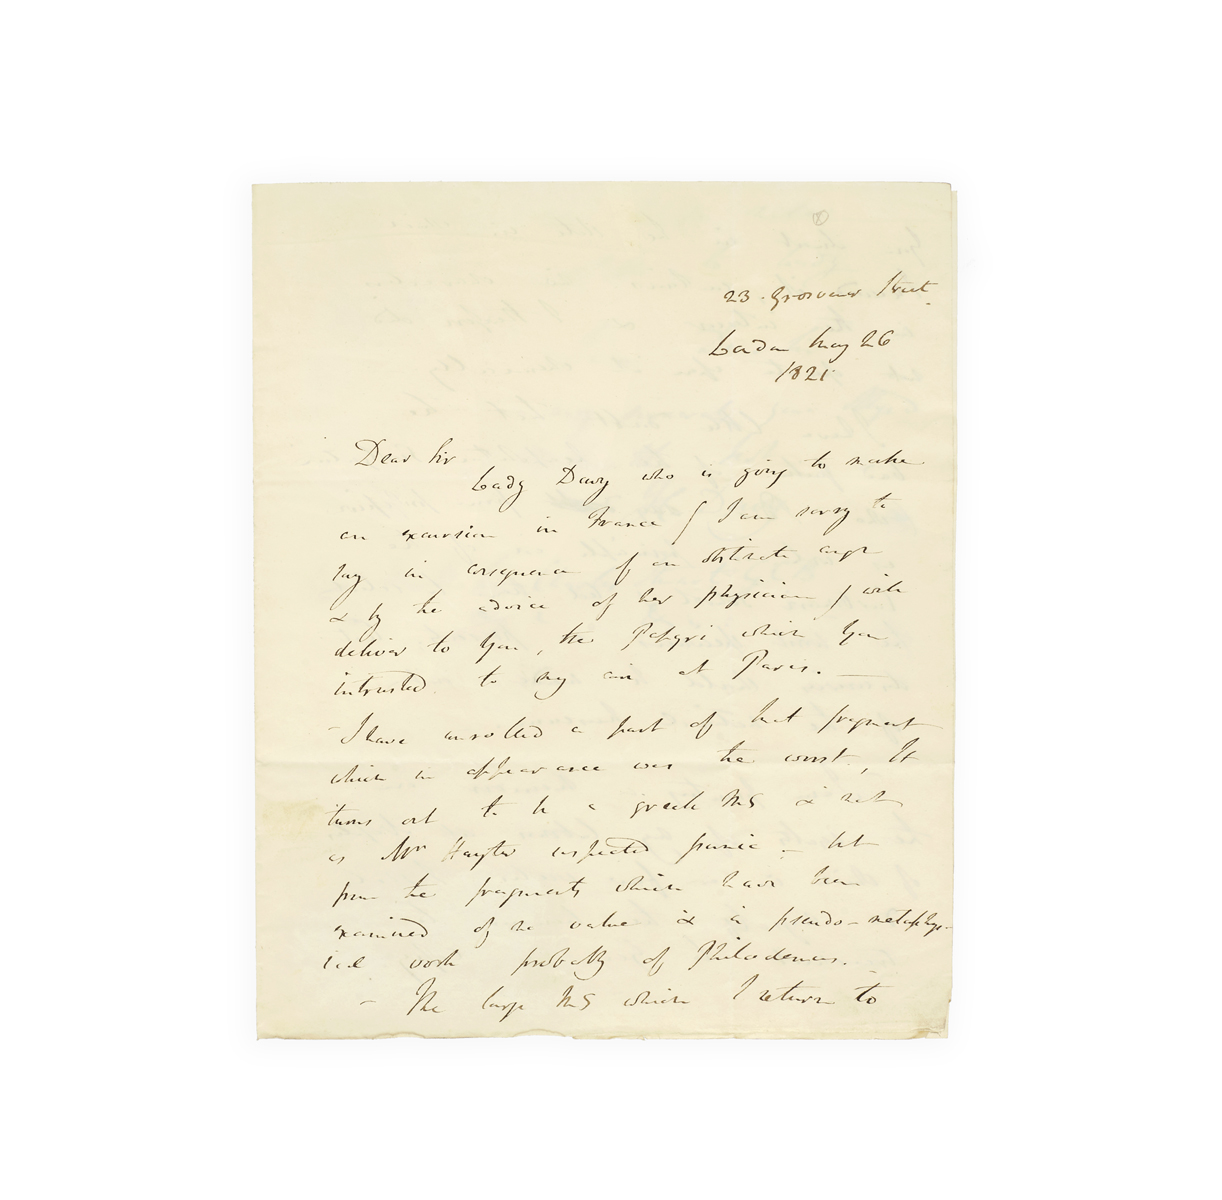 23. Grosvenor Street.
London May 26
1821
Dear Sir
Lady Davy who is going to make
an excursion in France ( I am sorry to
say in consequence of an obstinate cough
& by the advice of her physician ) will
deliver to you, the Papyri which you
intrusted to my care at Paris. —
— I have unrolled a part of that fragment
which in appearance was the worst, It
turns out to be a greek MS & not
as Mr Hayter suspected punic — but
from the fragments which have been
examined of no value & is pseudo-metaphys-
ical work probably of Philodemus. —
— The large MS which I return to